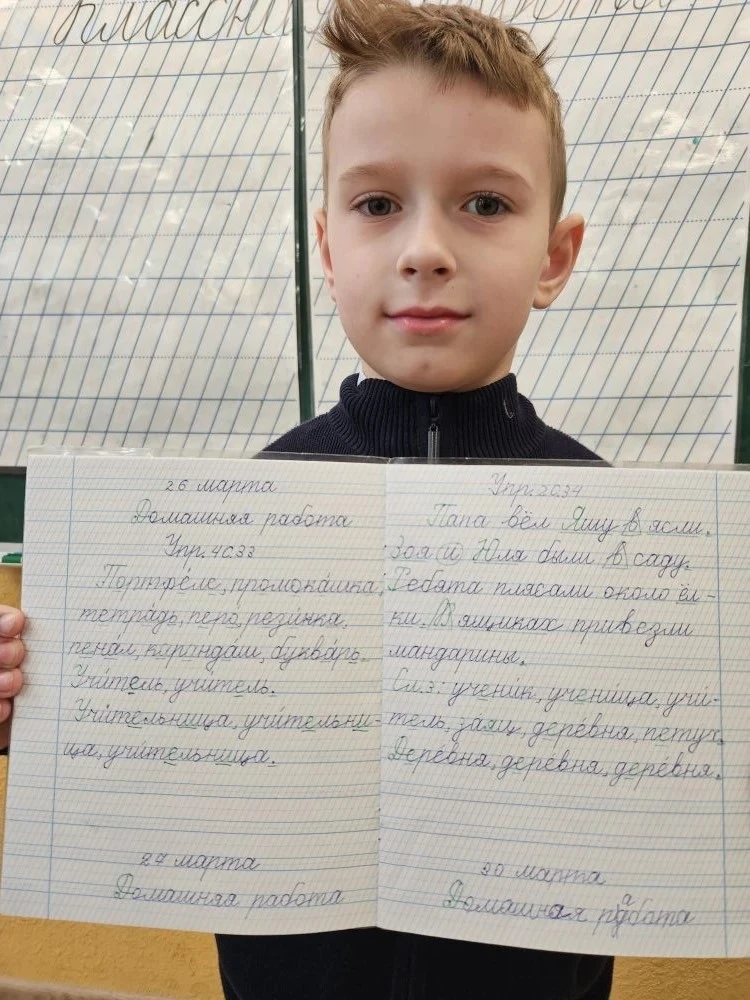 26 марта
Домашняя работа
Упр. 4 С.33
Портфéль, промокáшка,
тетрáдь, перó, рези́нка.
пенáл, карандáш, буквáрь.
Учи́тель, учи́тель.
Учи́тельница, учи́тельни-
ца, учи́тельница.
27 марта
Домашняя работа
Упр. 2 С.34
Папа вёл Яшу в ясли.
Зоя и Юля были в саду.
Ребята плясали около ёл-
ки. В ящиках привезли
мандарины.
Сл.з: учени́к, учени́ца, учи́-
тель, зáяц, дерéвня, петух.
Дерéвня, дерéвня, дерéвня.
30 марта
Домашная работа